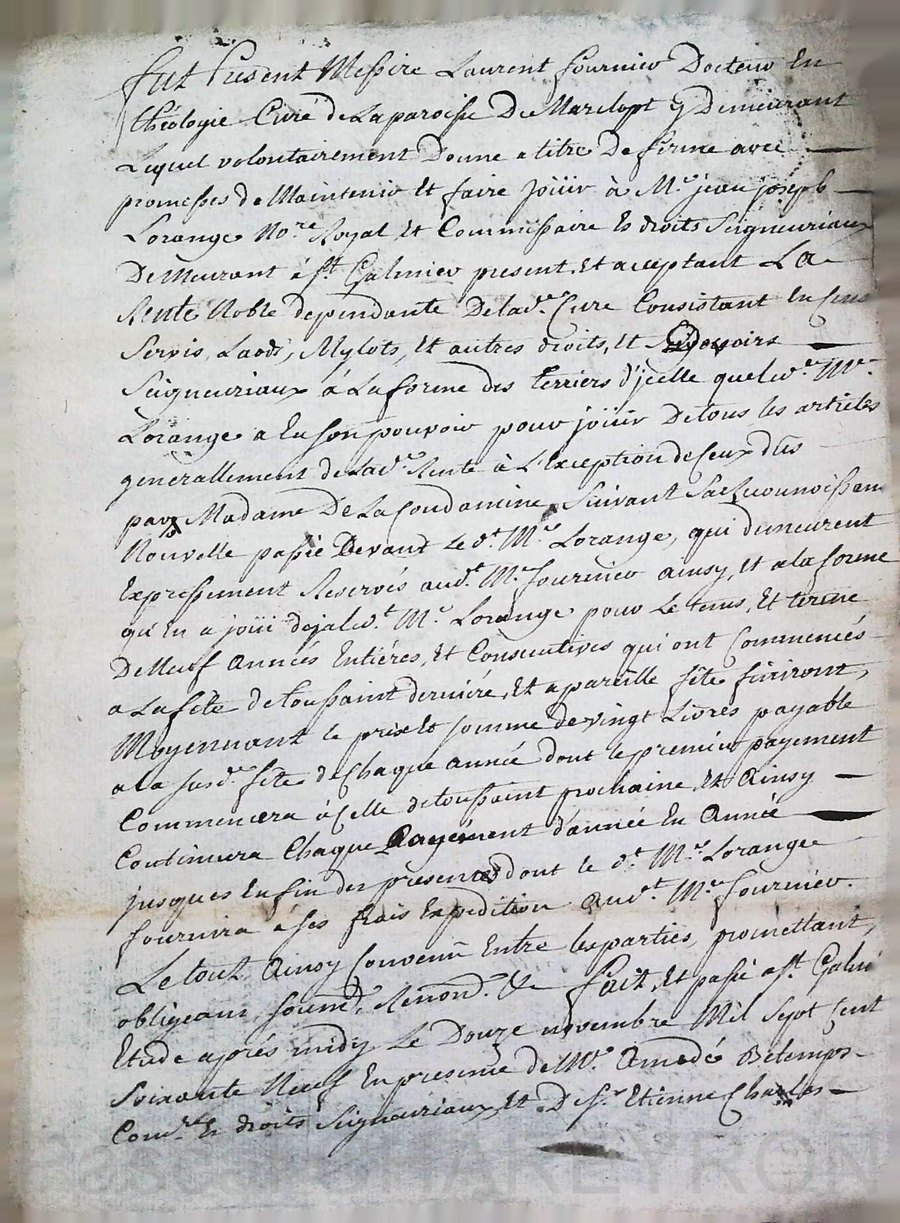 fut Present Messire Laurent fournier Docteur En
théologie Curé de La paroisse De Marclopt y Demeurant
Lequel volontairement Donne a titre De ferme avec
promesses de Maintenir Et faire joüir à Mr. jean joseph
Lorange Nore. Royal Et Commissaire Es droits Seigneuriaux
Demeurant à St. Galmier present, Et acceptant La
Rente Noble dependante De lade. Cure Consistant En Cens
Servis, Laods, Mylots, Et autres droits, Et devoirs
Seigneuriaux à La forme des terriers d'jcelle que led. Mr.
Lorange a En Son pouvoir pour joüir De tous les articles
generallement de Lade. Rente à L'Exception de Ceux dûs
par Madame De La Condamine Suivant Sa Reconnoissan
Nouvelle passée Devant Le d. Mr. Lorange, qui demeurent
Expressement Reservés aud. Mr. fournier ainsy, Et a la forme
qu'En a joüi deja led. Mr. Lorange pour Le tems, Et terme
De Neuf Années Entiéres, Et Consecutives qui ont Commencés
a La fête de toussaint derniére, Et a pareille fête finiront,
Moyennant le prix Et somme de vingt Livres payable
a la susde. fête de Chaque année dont le premier payement
Commencera à Celle de toussaint prochaine, Et Ainsy
Continuera Chaque Payement d'année En Année
jusques En fin des presentes dont le d. Mr. Lorange
fournira à ses frais Expedition aud. Mr. fournier.
Le tout Ainsy Convenû Entre les parties, promettant,
obligeant, soumt. Renond. &c fait, Et passé a St. Galmi
Etude aprés midy Le Douze novembre Mil Sept Cent
Soixante Neuf En presence de Mr. Amedé Betemps
Comre. Es droits Seigneuriaux, Et De Sr. Etienne Charles
Pascal CHAREYRON